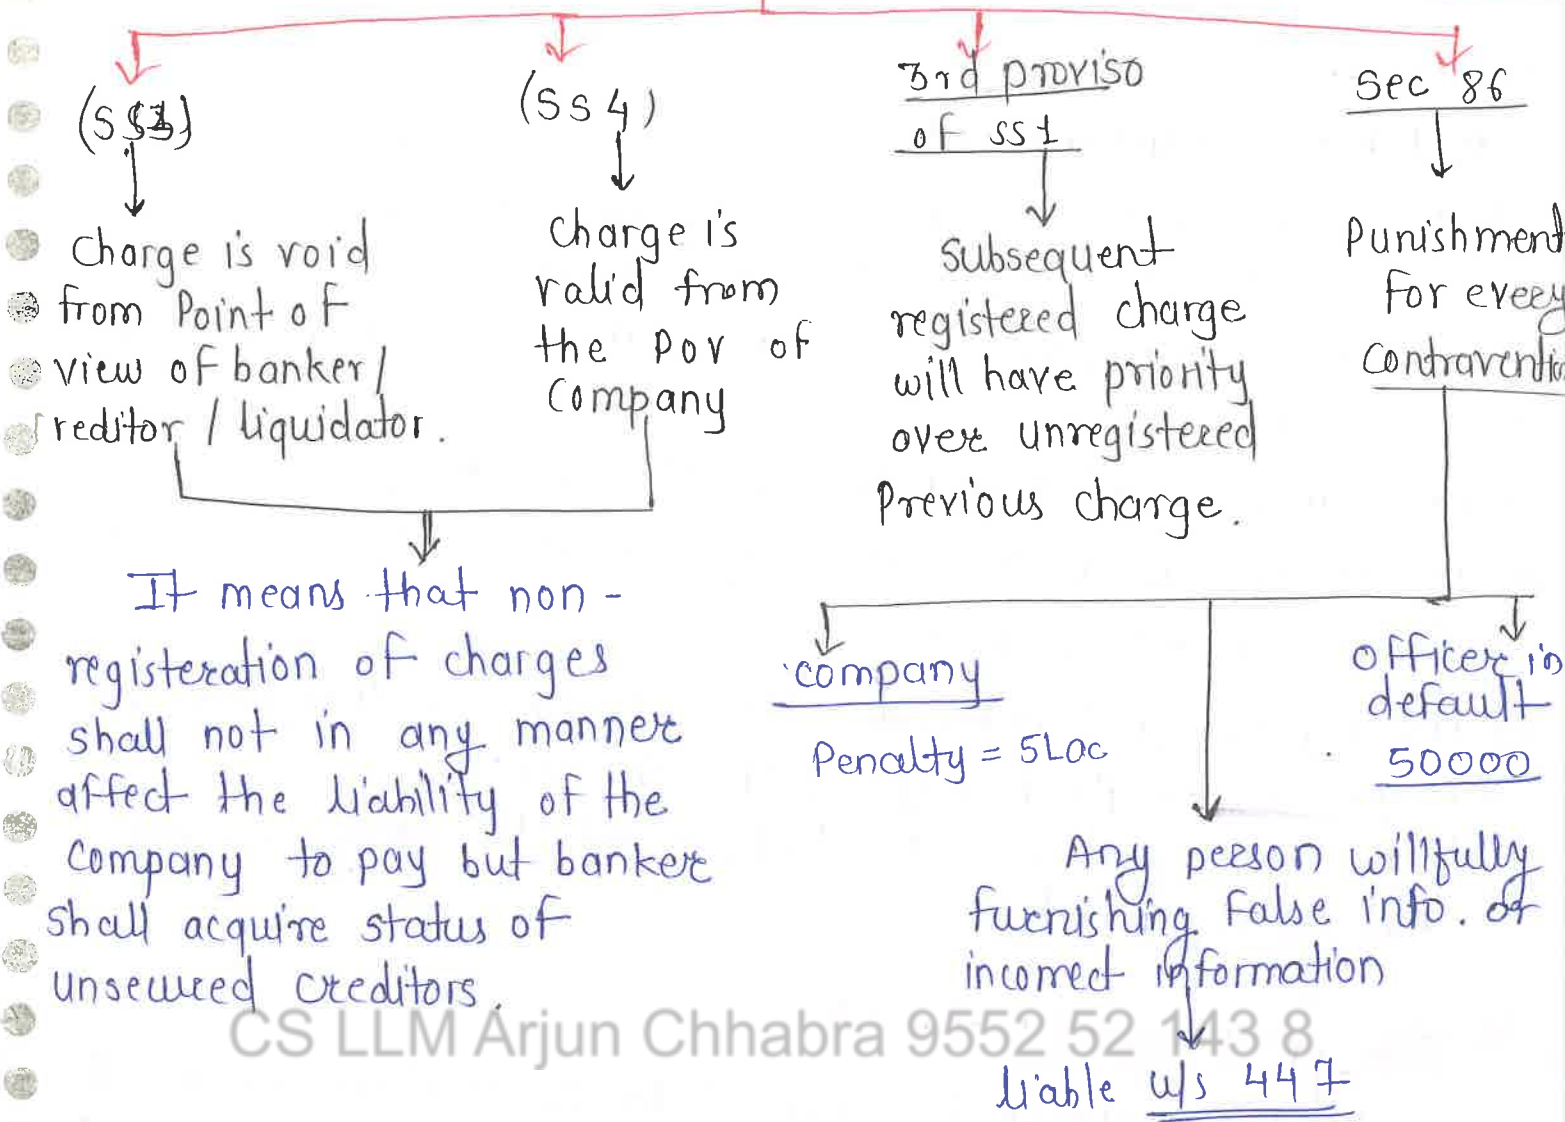 (SS3)
Charge is void
from Point of
view of banker/
reditor / liquidator.
(SS4)
Charge is
valid from
the POV of
Company
It means that non-
registeration of charges
shall not in any manner
affect the liability of the
Company to pay but banker
shall acquire status of
unsecured creditors.
3rd proviso
of SS1
Subsequent
registered charge
will have priority
over unregistered
Previous charge.
Sec 86
Punishment
For every
Contraventio
company
Penalty = 5Lac
Any person willfully
furnishing False info. or
incorrect information
liable u/s 447
officer in
default
50000
CS LLM Arjun Chhabra 9552 52 143 8